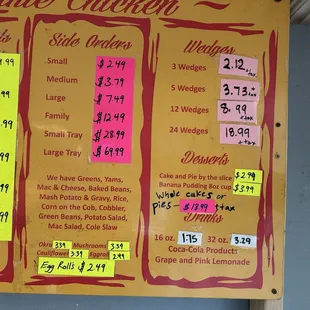 Chicken
Side Orders
Small $2.49
Medium $3.79
Large $7.49
Family $12.49
Small Tray $28.99
Large Tray $69.99
We have Greens, Yams,
Mac & Cheese, Baked Beans,
Mash Potato & Gravy, Rice,
Corn on the Cob, Cobbler,
Green Beans, Potato Salad,
Mac Salad, Cole Slaw
Okra 3.59 Mushrooms 3.59
Cauliflower 3.59 Eggroll 2.49
Egg Rolls $2.49
Wedges
3 Wedges 2.12 +tax
5 Wedges 3.73
12 Wedges 8.99 +tax
24 Wedges 18.99 +tax
Desserts
Cake and Pie by the slice $2.99
Banana Pudding 8oz cup $3.99
Whole cakes or
pies - $18.99 +tax
Drinks
16 oz. 1.75 32 oz. 3.29
Coca-Cola Products
Grape and Pink Lemonade